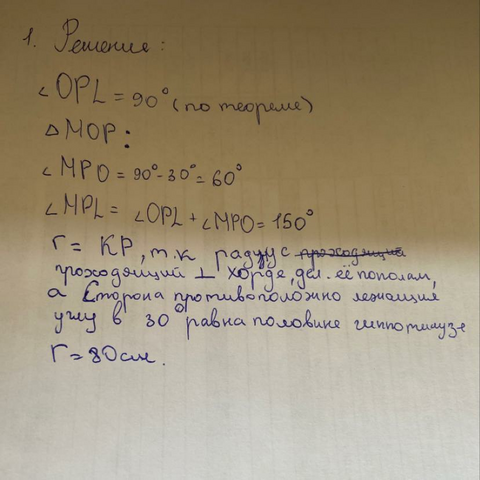 1. Решение:
∠OPL = 90° (по теореме)
△MOP:
∠MPO = 90° - 30° = 60°
∠MPL = ∠OPL + ∠MPO = 150°
r = KP, т.к радиус проходящий
проходящий ⊥ хорде, дел. её пополам,
а сторона противоположно лежащия
углу в 30° равна половине
r = 80см.